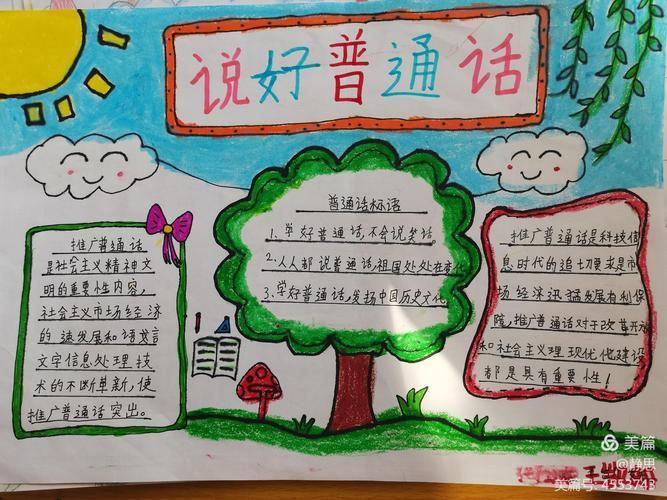 说好普通话
推广普通话
是社会主义精神文
明的重要性内容，
社会主义市场经济
的速发展和语言
文字信息处理技
术的不断革新，使
推广普通话突出。
普通话标语
1、学好普通话，不会说笑话
2、人人都说普通话，祖国处处在变化
3、学好普通话，发扬中国历史文化
推广普通话是科技信
息时代的追切要求是市
场经济迅猛发展有利保
障，推广普通话对于改革开放
和社会主义理现代化建设
都是具有重要性！
美篇
@静思
美篇号：4553743